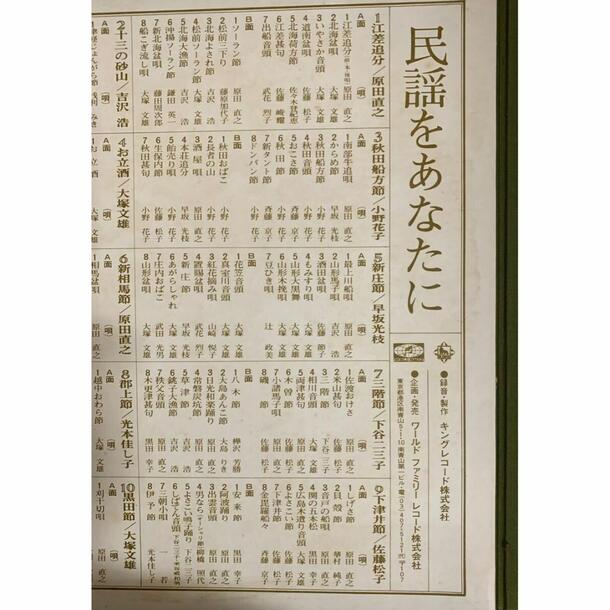 民謡をあなたに
●録音・製作 キングレコード株式会社
●企画・発売 ワールド ファミリー レコード株式会社
1江差追分/原田直之
A面 (唄)
2北海盆唄 大塚文雄
3いやさか音頭 大塚文雄
4道南盆唄 大塚文雄
5北海荷方節 佐々木登起恵
6江差甚句 佐藤峻耀
7出船音頭 武花烈子
B面
1ソーラン節 原田直之
2松前三下り 藤原加代子
3北海よされ節 吉沢浩
4松前ソーラン節 大塚文雄
5北海大漁節 吉沢浩
6沖揚ソーラン節 鎌田英一
7新北海盆唄 藤田周次郎
8船こぎ流し唄 大塚文雄
2十三の砂山/吉沢浩
A面 (唄)
3秋田船方節/小野花子
A面 (唄)
1南部牛追唄 原田直之
2からめ節 大塚文雄
3秋田船方節 小野花子
4秋田音頭 小野花子
5おこさ節 佐藤京子
6秋田節 小野花子
7新タント節 斉藤京子
8ドンパン節 小野花子
B面
1秋田おばこ 小野花子
2長者の山 小野花子
3酒屋唄 原田直之
4本荘追分 早坂光枝
5飴売り唄 原田直之
6生保内節 小野花子
7秋田甚句 小野花子
4お立酒/大塚文雄
A面 (唄)
1お立酒 大塚文雄
5新庄節/早坂光枝
A面 (唄)
1最上川船唄 原田直之
2山形馬子唄 吉沢浩
3酒田甚句 佐藤節子
4もみすり唄 大塚文雄
5山形大黒舞 大塚文雄
6山形木挽唄 大塚文雄
7豆ひき唄 辻政美
B面
1花笠音頭 大塚文雄
2真室川音頭 大塚文雄
3紅花摘み唄 山崎悦子
4置賜盆唄 武花烈子
5新庄節 早坂光枝
6あがらしゃれ 大塚文雄
7庄内おばこ 武田光男
8山形盆唄 大塚文雄
6新相馬節/原田直之
A面 (唄)
1相馬盆唄 原田直之
7三階節/下谷二三子
A面 (唄)
1佐渡おけさ 大塚文雄
2米山甚句 佐藤松子
3三階節 下谷二三子
4相川音頭 大塚文雄
5両津甚句 佐藤松子
6木曽節 佐藤松子
7小諸馬子唄 原田直之
8磯節 佐藤松子
B面
1八木節 樺沢芳勝
2大島あんこ節 大島りき
3日光和楽踊り 原田直之
4常磐炭坑節 原田直之
5草津節 吉沢浩
6銚子大漁節 吉沢浩
7秩父音頭 原田直之
8木更津甚句 黒田幸子
8郡上節/光本佳し子
A面 (唄)
1越中おわら節 大塚文雄
9下津井節/佐藤松子
A面 (唄)
1しげさ節 原田直之
2貝殻節 華村純子
3音戸の船唄 原田直之
4関の五本松 黒田幸子
5広島木遣り音頭 大塚文雄
6よさこい節 佐藤松子
7下津井節 佐藤松子
8金毘羅船々 斉藤京子
B面
1安来節 黒田幸子
2阿波踊り 原田直之
3出雲音頭 原田直之
4男なら(オーシャリ節) 柳橋照代
5よさこい鳴子踊り 下谷二三子
6しばてん音頭
7三朝小唄 一若
8伊予節 光本佳し子
10黒田節/大塚文雄
A面 (唄)
1刈干切唄 原田直之